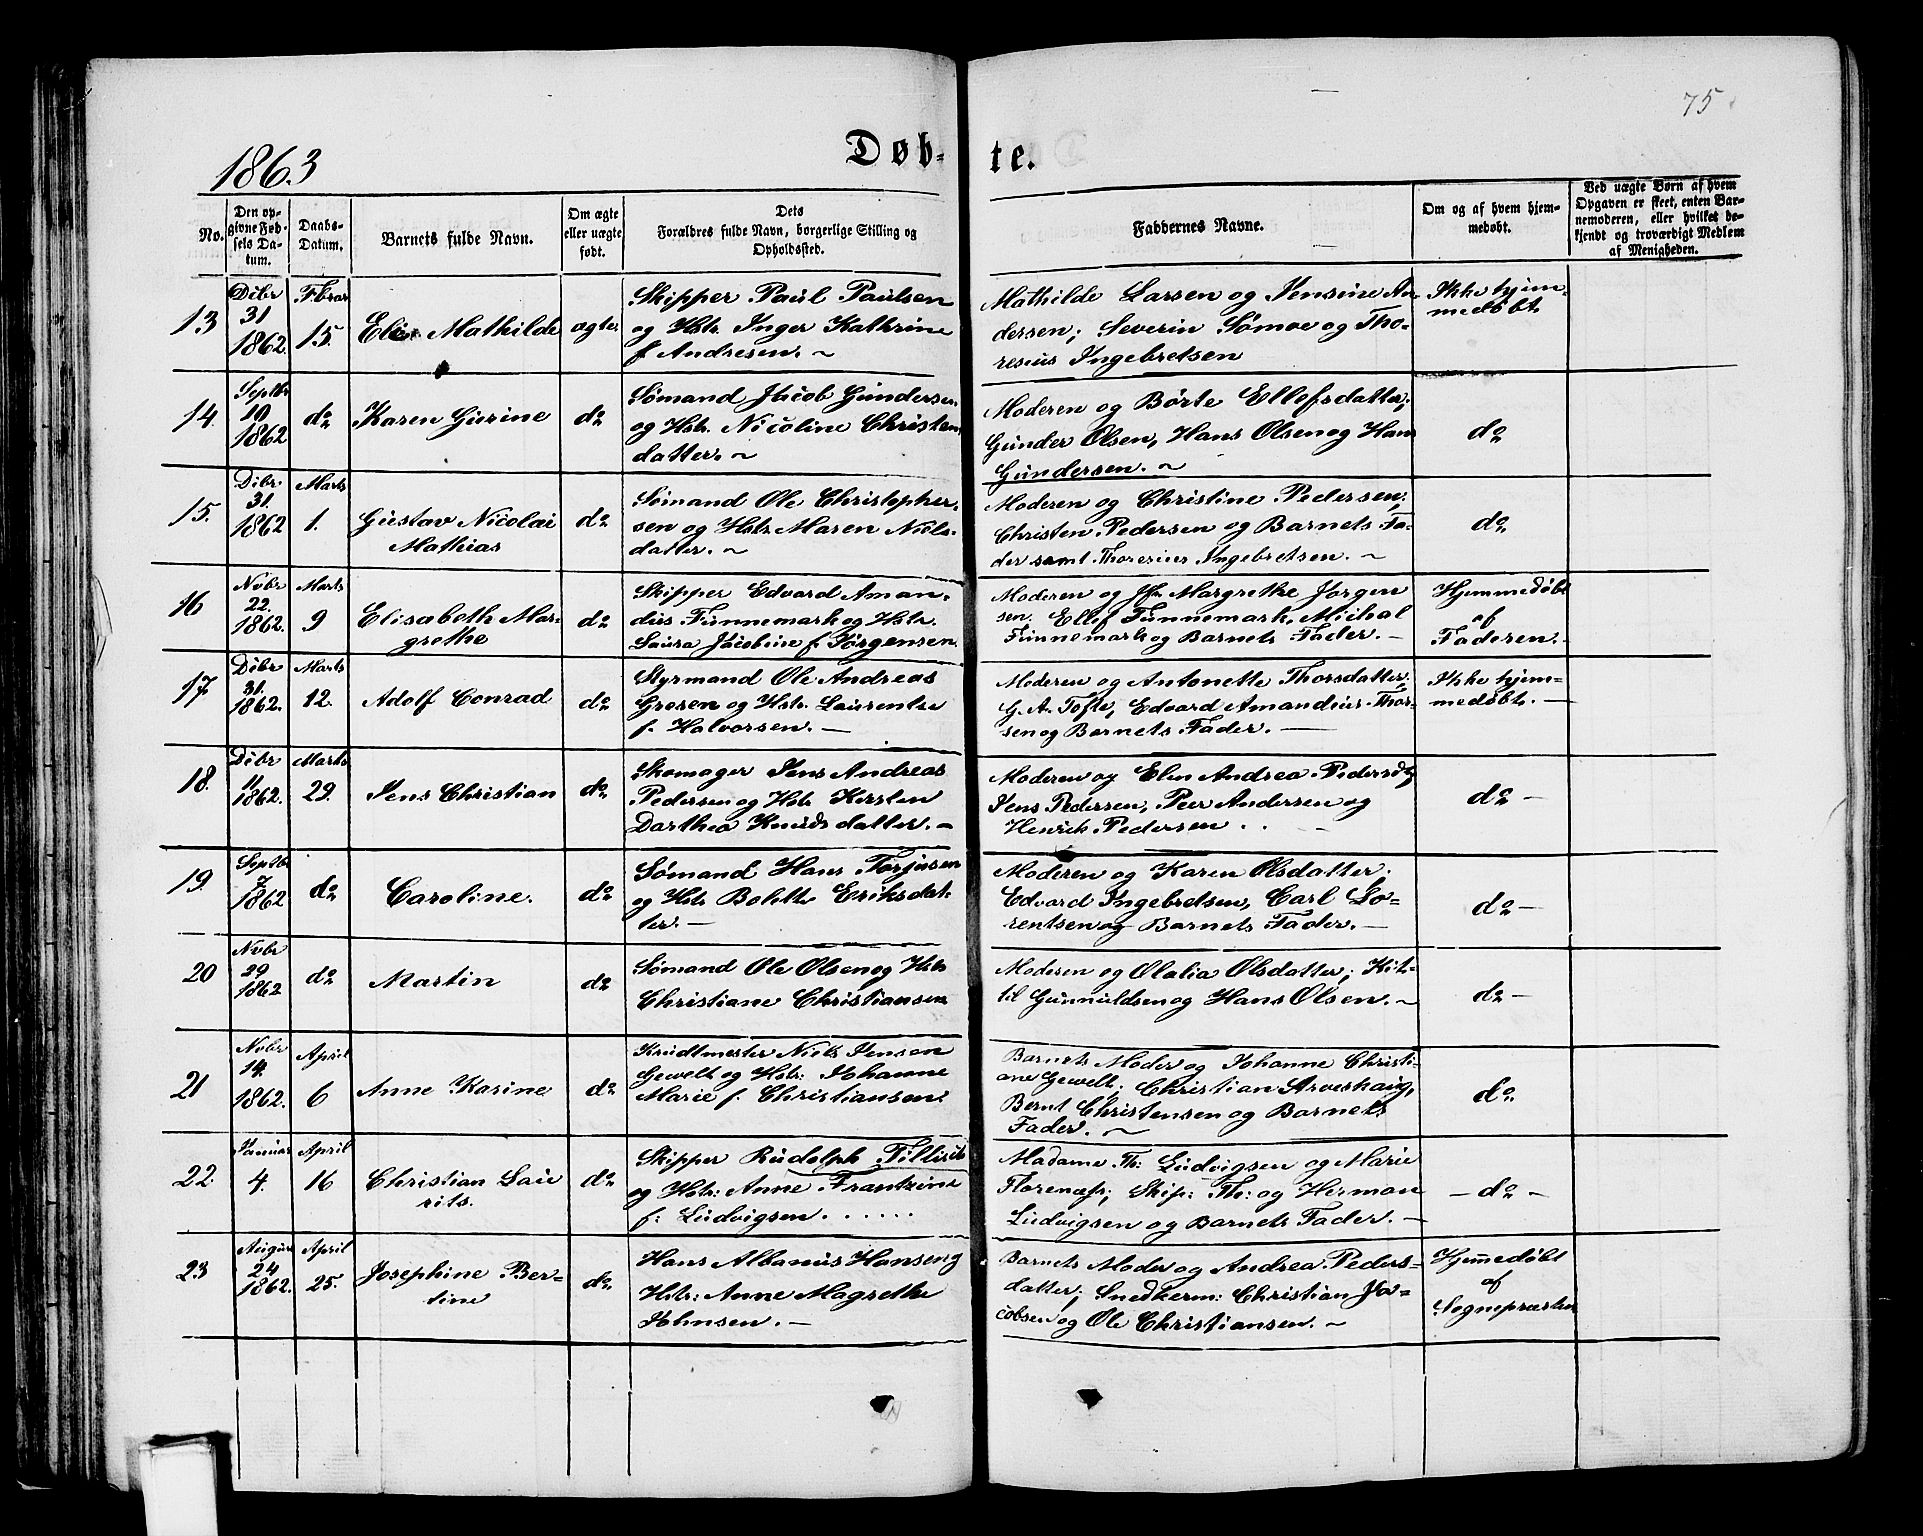 75
1863
Døb-
te.
No.
Den op-
givne Fød-
sels Da-
tum.
Daabs-
Datum.
Barnets fulde Navn.
Om ægte
eller uægte
født.
Dets
Forældres fulde Navn, borgerlige Stilling og
Opholdssted.
Faddernes Navne.
Om og af hvem hjem-
medøbt.
Ved uægte Børn af hvem
Opgaven er skeet, enten Bar-
nemoderen, eller hvilket be-
kjendt og troværdigt Medlem
af Menigheden.
13
Dcbr
31
1862.
Febrar
15.
Elise Mathilde
ægte
Skipper Paul Paulsen
og Hstr. Inger Kathrine
f Andresen. ~
Mathilde Larsen og Jensine An-
dersen; Severin Sømoe og Tho-
resius Ingebretsen
Ikke hjem-
medøbt.
14.
Septbr
19
1862
do
Karen Gurine
do
Sømand Jacob Gundersen
og Hstr. Nicoline Christen-
datter. ~
Moderen og Børte Ellefsdatter;
Gunder Olsen, Hans Olsen og Hans
Gundersen. ~
do
15.
Dcbr
31.
1862
Marts
1.
Gustav Nicolai
Mathias
do
Sømand Ole Christopher-
sen og Hstr. Maren Niels-
datter. ~
Moderen og Christine Pedersen;
Christen Pedersen og Barnets Fa-
der samt Thoresius Ingebretsen. ~
do
16
Nvbr
22.
1862
Marts
9
Elisabeth Mar-
grethe
do
Skipper Edvard Aman-
dus Funnemark og Hstr.
Laura Jacobine f. Jørgensen
Moderen og Jfr Margrethe Jørgen
sen. Ellef Funnemark, Michal
Funnemark og Barnets Fader. -
Hjemmedøbt
af
Faderen.
17.
Dcbr
31.
1862.
Marts
12.
Adolf Conrad
do
Styrmand Ole Andreas
Grosen og Hstr. Laurentse
f. Halvorsen. -
Moderen og Antonette Thorsdatter;
G. A. Tofte, Edvard Amandius Thor-
sen og Barnets Fader. -
Ikke hjem-
medøbt. -
18.
Dcbr
11
1862.
Marts
29.
Jens Christian
do
Skomager Jens Andreas
Pedersen og Hstr Kirsten
Dorthea Knudsdatter. -
Moderen og Elen Andrea Pedersdtr
Jens Pedersen, Peer Andersen og
Henrik Pedersen . . -
do -
19.
Septbr
7.
1862
do
Caroline.
do
Sømand Hans Torjusen
og Hstr Bolette Eriksdat-
ter. -
Moderen og Karen Olsdatter.
Edvard Ingebretsen, Carl Lo-
rentsen og Barnets Fader. -
do -
20
Nvbr
29
1862
do
Martin
do
Sømand Ole Olsen og Hstr
Christiane Christiansen
Moderen og Olalia Olsdatter; Kit-
til Gunnuldsen og Hans Olsen. ~
do -
21
Nvbr
14.
1862.
April
6
Anne Karine
do
Krudtmester Niels Jensen
Gewelt og Hstr: Johanne
Marie f. Christiansen.
Barnets Moder og Johanne Christi-
ane Gewelt; Christian Arveskaug,
Bernt Christensen og Barnets
Fader. ~
do
22.
Januar
4.
April
16
Christian Lau
rits.
do
Skipper Rudolph Tillisch
og Hstr: Anne Frantzine
f: Ludvigsen . . . . . .
Madame Th: Ludvigsen og Marie
Florenæss; Skip: Th: og Herman
Ludvigsen og Barnets Fader. -
- do -
23
August
24
1862.
April
25.
Josephine Ber-
tine
do
Hans Albanus Hansen og
Hstr: Anne Magrethe
Johnsen. -
Barnets Moder og Andrea Peders-
datter; Snedkerm: Christian Ja-
cobsen og Ole Christiansen. ~
Hjemmedøbt
af
Sognepræsten